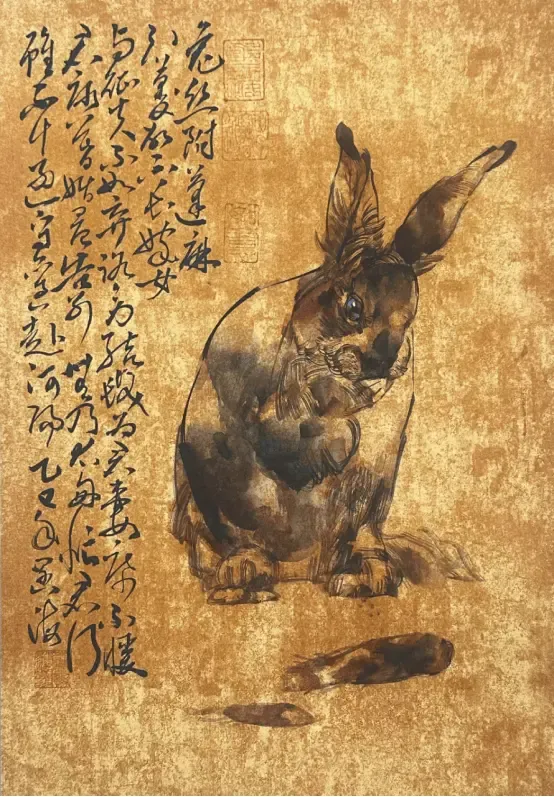 兔絲附蓬麻
引蔓故不長嫁女
与征夫不如弃路旁結髮为君妻席不暖
君床暮婚晨告别無乃太匆忙君行
雖不遠守邊赴河陽乙巳年